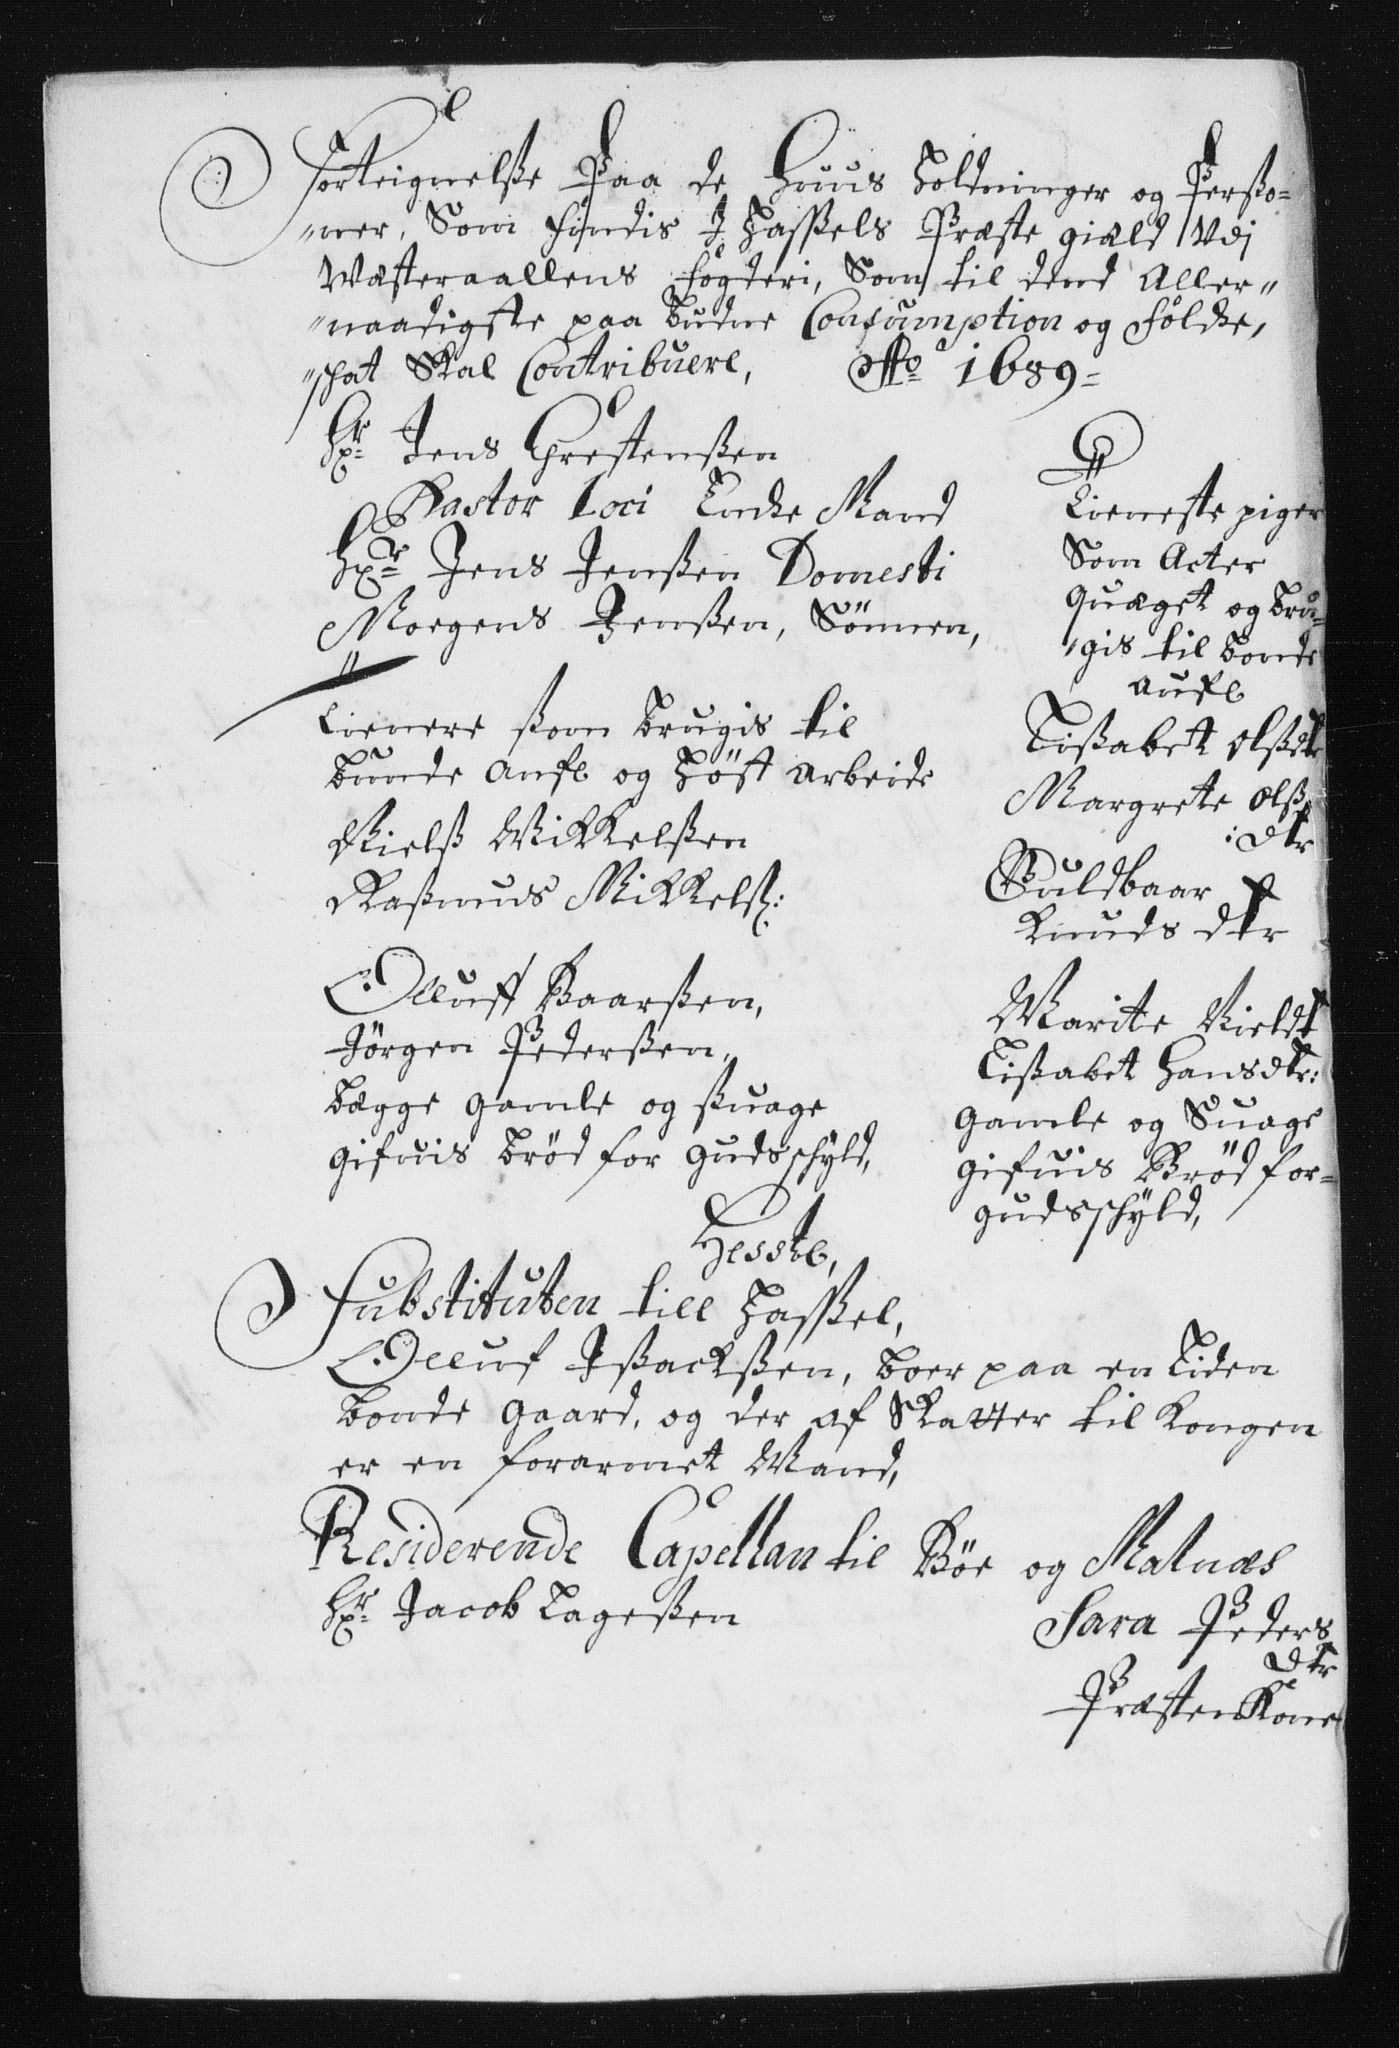 Forteignelsse Paa de Huus Holdninger og Persso-
"ner, Som findis J Hasssels Præste giæld Udj
Wæsteraallens fögderi, Som til dend Aller"
"naadigste paa budne Consumption og folche,
"schat Skal Contribuere, Ao 1689=
Hr Jens Chrestenssen
Pastor Loci Encke Mand
Hr Jens Jenssen Domesti
Moegens Jenssen, Sönnen,
Tienere ssom brugis til
bunde aufl og Höst arbeide
Nielss Mikkelssen
Rassmus Mikkelss:
Olluff Baarssen,
Jörgen Pederssen,
bægge gamle og ssuage
gifuis bröd for gudsschÿld,
Tieneste piger
Som Acter
quæget og bru=
"gis til bonde
aufl
Lissabet olssdtr
Margrete olss
:dtr
Guldbaar
Knuds dtr
Marite Nielsdt
Lissabet Hansdtr:
gamle og Suage
gifuis Bröd for=
gudsschÿld,
Hesste,
Substituten till Hasssel,
Olluf Jssackssen, boer paa en Liden
bonde gaard, og der af Skatter til kongen
er en forarmet Mand,
Residerende Capellan til Böe og Malnæs
Hr Jacob Lagessen
Sara Peders
dtr
Præstens Kone